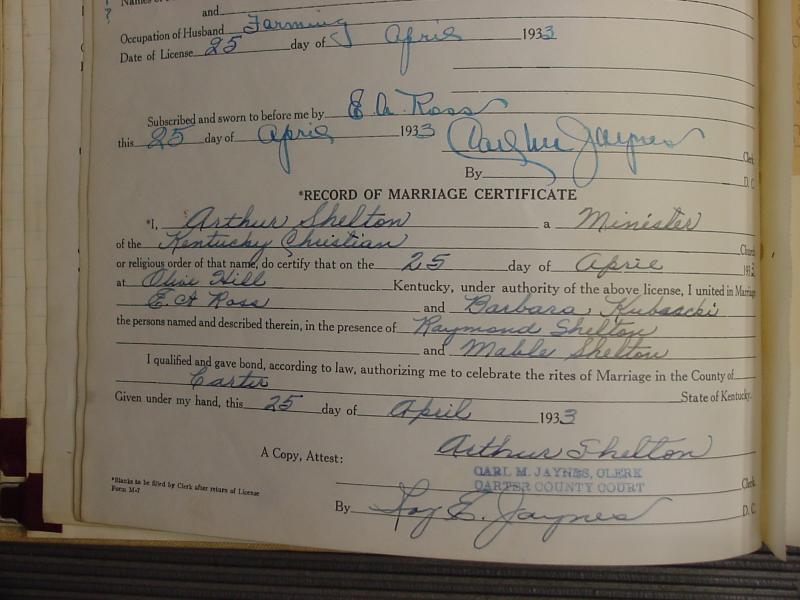 and
Occupation of Husband Farming
Date of License 25 day of April 1933
Subscribed and sworn to before me by E. A. Ross
this 25 day of April 1933 Carl M. Jaynes Clerk
By D. C.
*RECORD OF MARRIAGE CERTIFICATE
*I, Arthur Shelton a Minister
of the Kentucky Christian Church
or religious order of that name, do certify that on the 25 day of April 193
at Olive Hill Kentucky, under authority of the above license, I united in Marriage
E. A Ross and Barbara
the persons named and described therein, in the presence of Raymond Shelton
and Mable Shelton
I qualified and gave bond, according to law, authorizing me to celebrate the rites of Marriage in the County of
Carter State of Kentucky.
Given under my hand, this 25 day of April 1933
Arthur Shelton
A Copy, Attest:
CARL M. JAYNES, CLERK
CARTER COUNTY COURT Clerk
*Blanks to be filled by Clerk after return of License
Form M-7
By Fay E. Jaynes D. C.